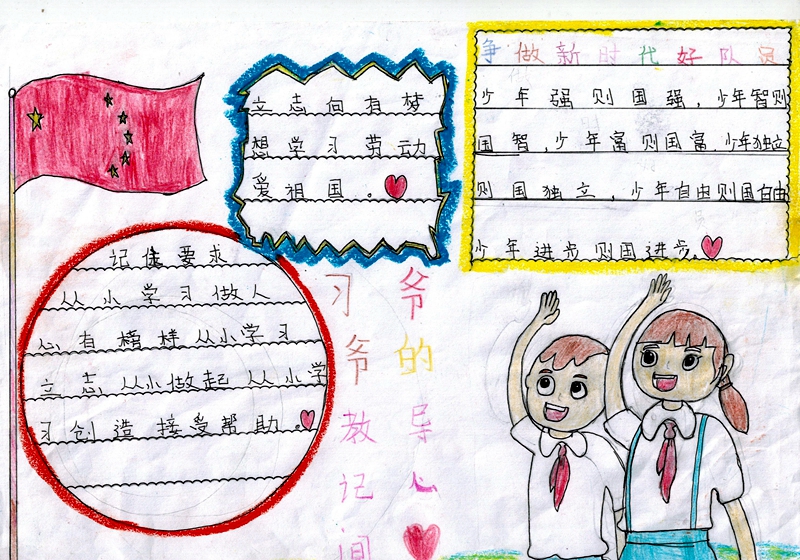 立志向有梦
想学习劳动
爱祖国。
争做新时代好队员
少年强则国强，少年智则
国智，少年富则国富，少年独立
则国独立，少年自由则国自由
少年进步则国进步。
记住要求
从小学习做人
心有榜样从小学习
立志从小做起从小学
习创造接受帮助。
习爷
爷的
教导
记心
间